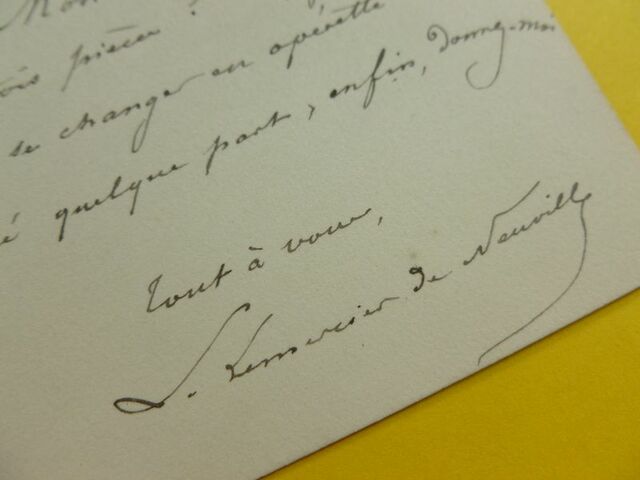 Mon
pièces ?
se changer en opérette
é quelque part, enfin, donnez-moi
Tout à vous,
L. Lemercier de Neuville